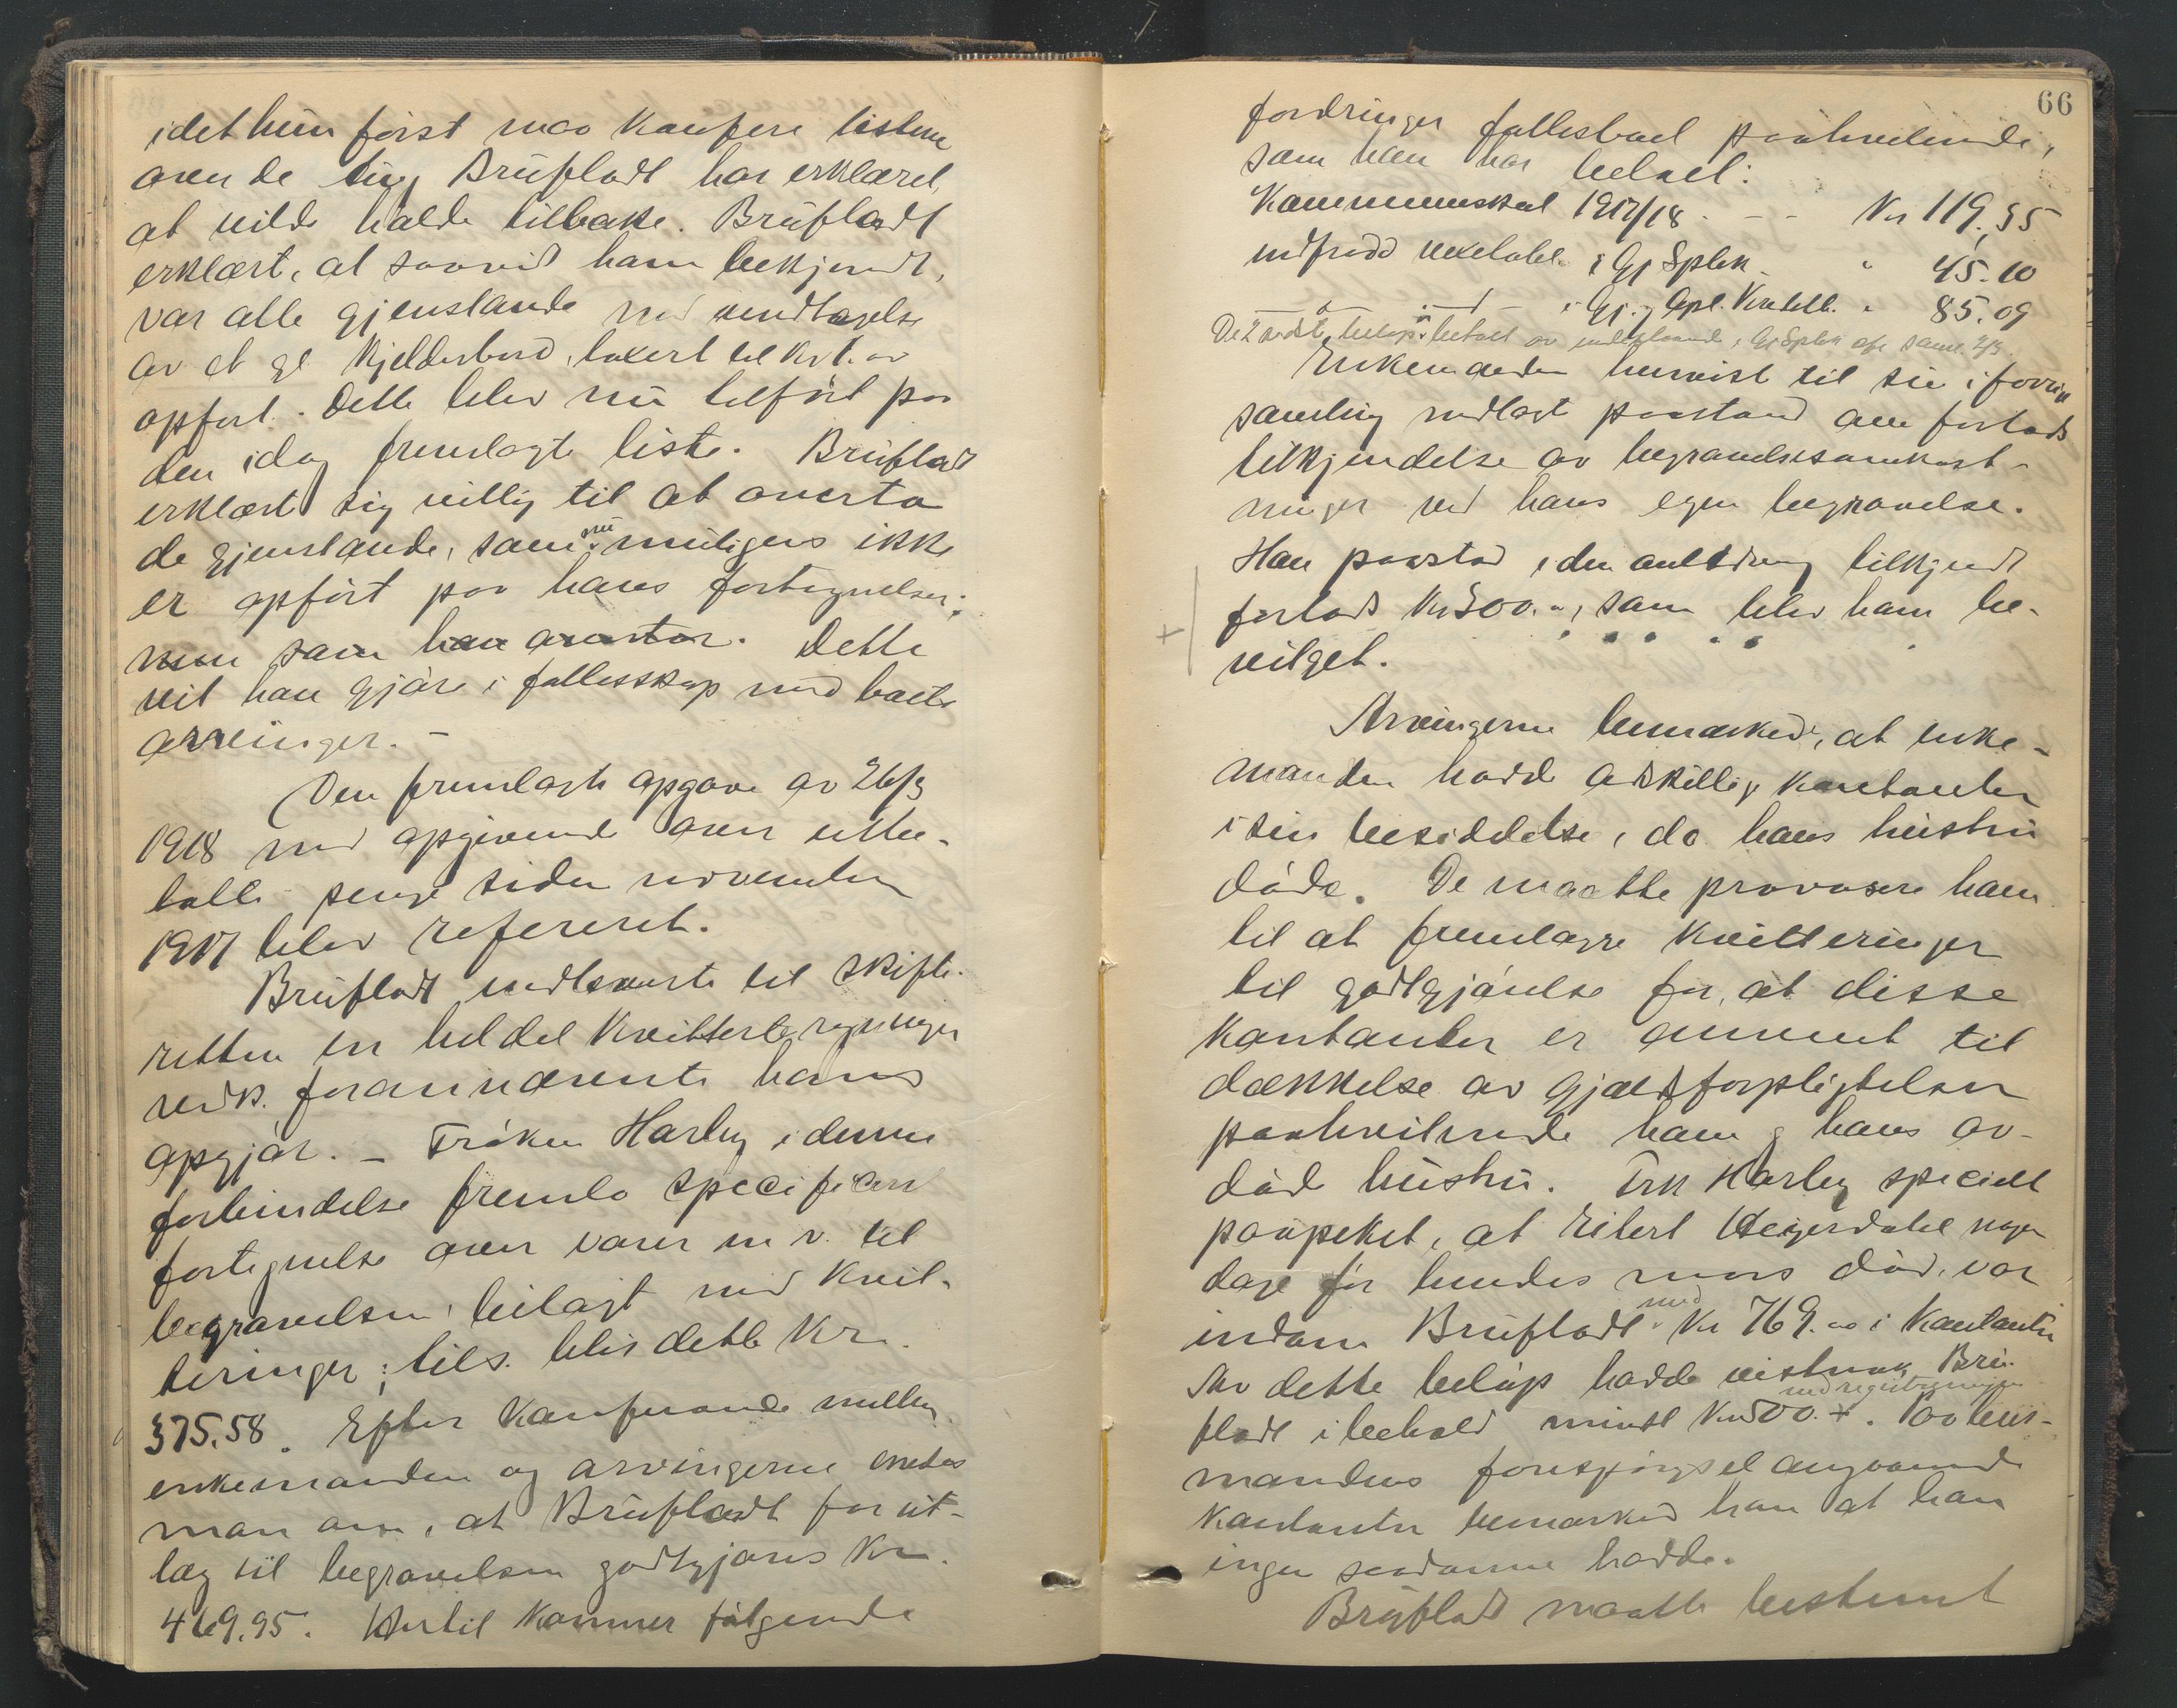 idet hun först maa konfere listene
over de ting Brufladt har erklæret,
at vilde holde tilbake. Brufladt
erklært, at saavid ham bekjendt,
var alle gjenstande med undtagelse
av et gl. kjelderbord, taxert til kr 1. av
opfört. Dette blev nu tilfört paa
den idag fremlagte liste. Brufladt
erklært sig villig til at overta
de gjenstande, som nu muligens ikke
er opfört paa hans fortegnelser;
men som han overtar. Dette
vil han gjöre i fællesskap med barte
arvinger. –
Den fremlagte opgave av 26/3
1918 med opgivende over utbe-
talte penge siden november
1917 blev refereret.
Brufladt indleverte til skifte-
retten en hel del kvitterte regninger
vedk. forannævnte hans
opgjör. – Fröken Harby i denne
forbindelse fremla specificert
fortegnelse over varer m. v. til
begravelsen, bilagt med kvit-
teringer; tils. blir dette Kr.
375,58. Efter konferance mellem
enkemanden og arvingerne enedes
man om, at Brufladt for ut-
læg til begravelsen godtgjöres Kr.
469,95. Hertil kommer fölgende
66
fordringer fællesboet paahvilende,
som han har betalt:
Kommuneskat 1917/18 - - - Kr 119,55
indfridd vexelobl. i Gj Spbk - " 45.10
— " — — " — i Gj. og Opl. Kreditb. " 85.09
De 2 sidste belöp betalt av indestaaende i Gj Spbk afr samme 2/3.
Enkemanden henvist til sin i forrige
samling nedlagt paastand om forlods
tilkjendelse av begravelsesomkost-
ninger ved hans egen begravelse.
Han paastod i den anledning tilkjendt
forlods Kr 300.-, som blev ham be-
vilget.
Arvingerne bemærked, at enke-
manden hadde adskillige kontanter
i sin besiddelse, da hans hustru
döde. De maatte provosere ham
til at fremlægge kvitteringer
til godtgjörelse for, at disse
kontanter er anvendt til
dækkelse av gjældsforpligtelser
paahvilende ham og hans av-
död hustru. Frk Harby specielt
paapeket, at Ritert Heijerdahl nogen
dage för hendes mors död, var
indom Brufladt med Kr 769.00 i kontanter
Av dette belöp hadde vistnok Bru-
fladt i behold mindst Kr 500.+. Paa bus-
ved registreringen
mandens forespörgsel angaaende
kontanter bemærked han at han
ingen saadanne hadde.
Brufladt maatte bestemt